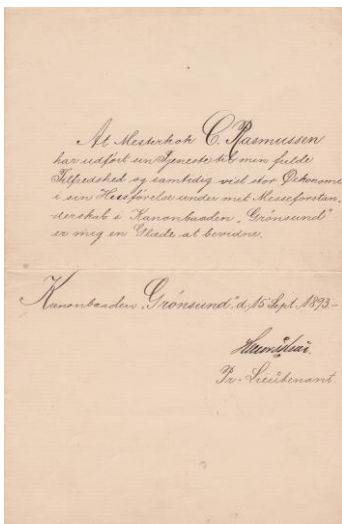 At Mesterkok C. Rasmussen
har udført sin Tjeneste til min fulde
Tilfredshed og samtidig vist stor Økonomi
i sin Husførelse under mit Messeforstan-
derskab i Kanonbaaden „Grønsund"
er mig en Glæde at bevidne.
Kanonbaaden „Grönsund", d. 15 Sept. 1893-
Pr. Lieutenant